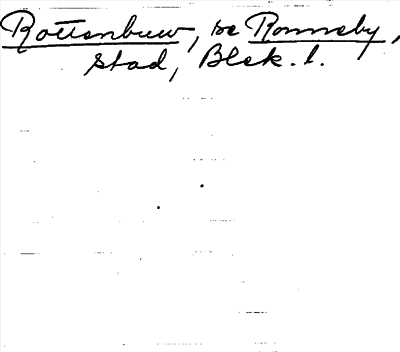 Rottenbuw, se Ronneby,
stad, Blek. l.